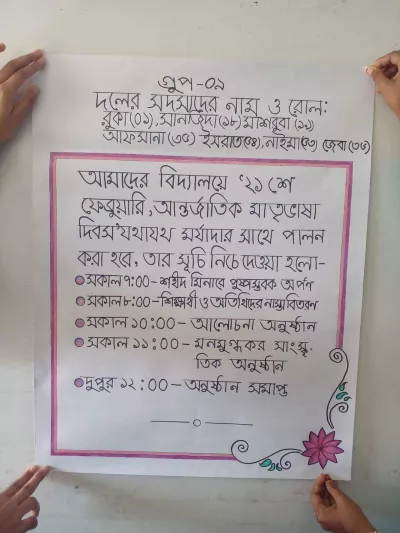 গ্রুপ-০৯
দলের সদস্যদের নাম ও রোল:
রুকা(০১), সানজিদা(২৮) মাশরুবা (২৯)
আফসানা(৩৫) ইসরাত(৪৯), নাইমা(৫৩) জেবা(৩৬)
আমাদের বিদ্যালয়ে '২১ শে
ফেব্রুয়ারি, আন্তর্জাতিক মাতৃভাষা
দিবস' যথাযথ মর্যাদার সাথে পালন
করা হবে, তার সূচি নিচে দেওয়া হলো-
সকাল ৭:00- শহীদ মিনারে পুষ্পস্তবক অর্পণ
সকাল ৮:00- শিক্ষার্থী ও অতিথিদের নাস্তা বিতরন
সকাল ১০:00- আলোচনা অনুষ্ঠান
সকাল ১১:00- মনমুগ্ধকর সাংস্কৃ-
তিক অনুষ্ঠান
দুপুর ১২:00- অনুষ্ঠান সমাপ্ত